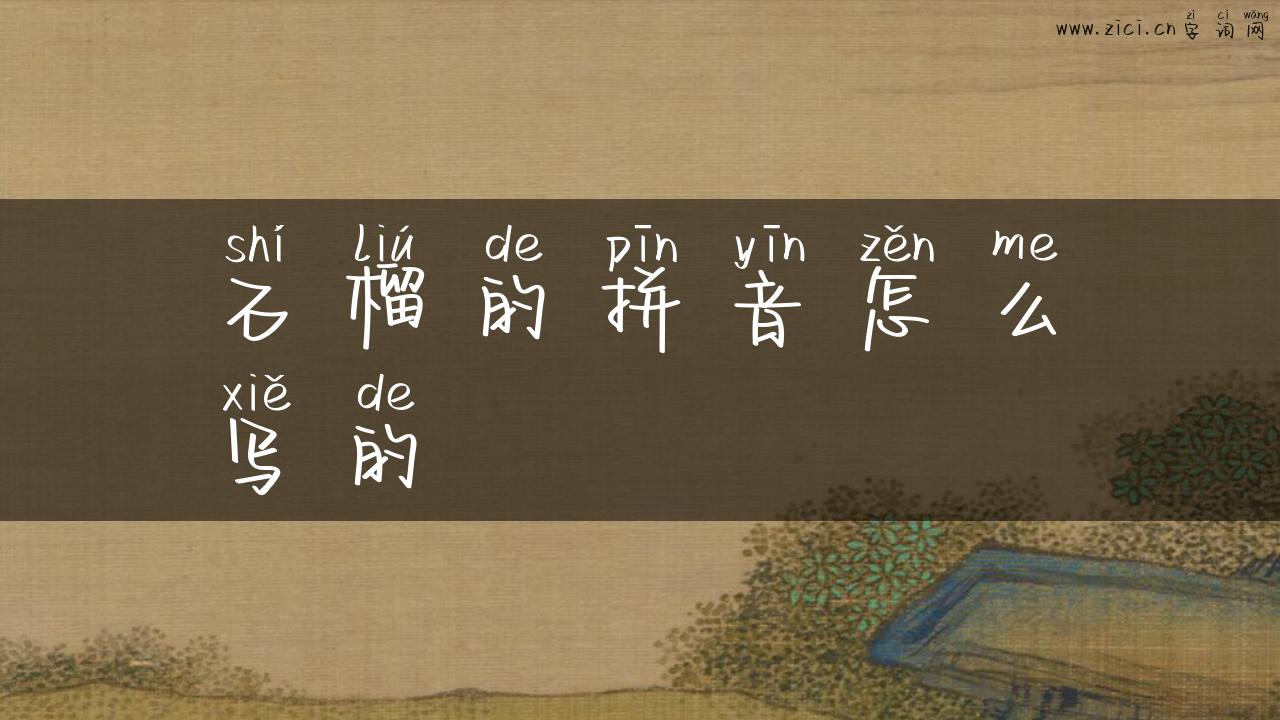 zì cí wǎng
www.zici.cn 字 词 网
shí liú de pīn yīn zěn me
石 榴 的 拼 音 怎 么
xiě de
写 的